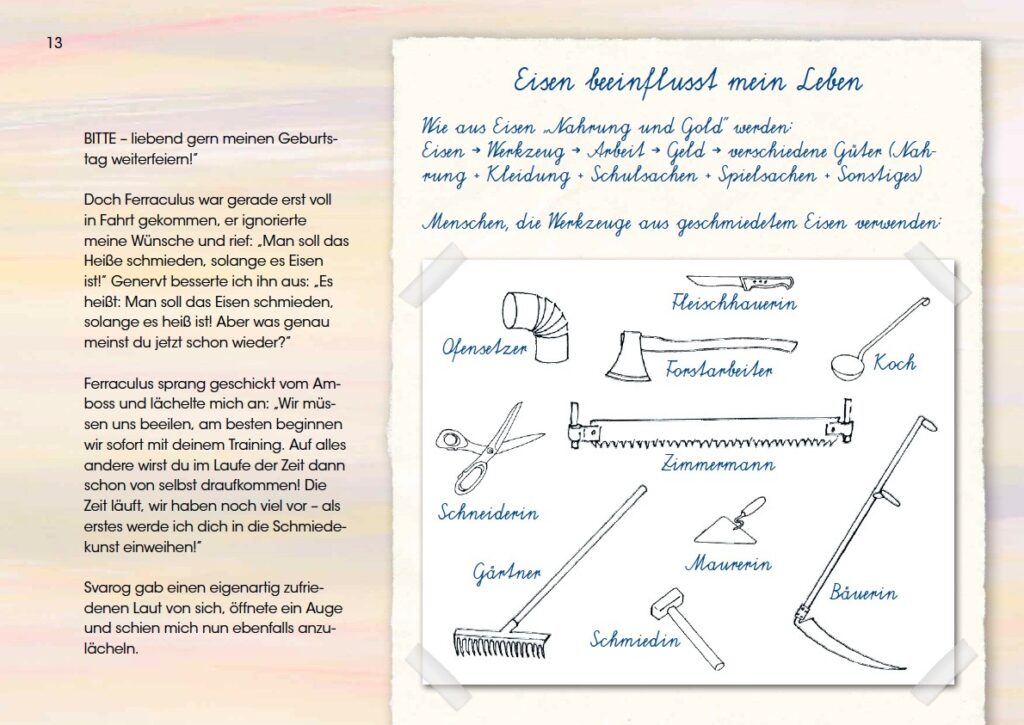 13
BITTE – liebend gern meinen Geburts-
tag weiterfeiern!“
Doch Ferraculus war gerade erst voll
in Fahrt gekommen, er ignorierte
meine Wünsche und rief: „Man soll das
Heiße schmieden, solange es Eisen
ist!“ Genervt besserte ich ihn aus: „Es
heißt: Man soll das Eisen schmieden,
solange es heiß ist! Aber was genau
meinst du jetzt schon wieder?“
Ferraculus sprang geschickt vom Am-
boss und lächelte mich an: „Wir müs-
sen uns beeilen, am besten beginnen
wir sofort mit deinem Training. Auf alles
andere wirst du im Laufe der Zeit dann
schon von selbst draufkommen! Die
Zeit läuft, wir haben noch viel vor – als
erstes werde ich dich in die Schmiede-
kunst einweihen!“
Svarog gab einen eigenartig zufrie-
denen Laut von sich, öffnete ein Auge
und schien mich nun ebenfalls anzu-
lächeln.
Eisen beeinflusst mein Leben
Wie aus Eisen „Nahrung und Gold“ werden:
Eisen → Werkzeug → Arbeit → Geld → verschiedene Güter (Nah-
rung + Kleidung + Schulsachen + Spielsachen + Sonstiges)
Menschen, die Werkzeuge aus geschmiedetem Eisen verwenden:
Fleischhauerin
Ofensetzer
Forstarbeiter
Koch
Zimmermann
Schneiderin
Gärtner
Maurerin
Bäuerin
Schmiedin